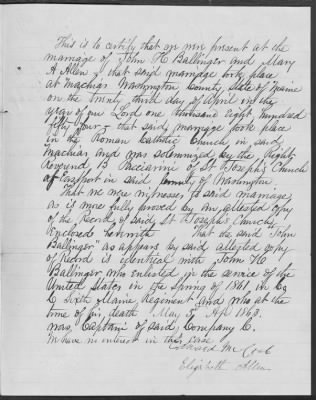 This is to certify that we were present at the
marriage of John H Ballinger and Mary
A Allen that said marriage took place
at Machias Washington County, State of Maine
on the twenty third day of April in the
year of our Lord one thousand eight hundred
fifty four - that said marriage took place
in the Roman Catholic Church in said
Machias and was solemnized by the Right
Reverend B Bacciarine of St Joseph's Church
of Eastport in said County of Washington.
That we were witnesses to said marriage
as is more fully proved by an attested copy
of the Record of said St Joseph's Church
enclosed herewith That the said "John
Ballinger" as appears by said attested copy
of Record is identical with John H.
Ballinger who enlisted in the service of the
United States in the Spring of 1861, in Co
C Sixth Maine Regiment and who at the
time of his death May 3, AD 1863.
was Captain of said Company C.
We have no interest in this case
Edward M
Elizabeth Allen